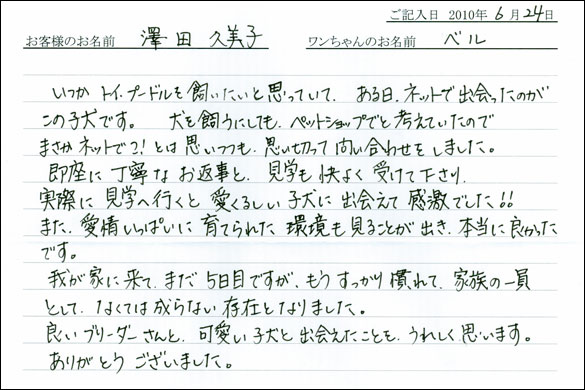 ご記入日 2010年 6月24日
お客様のお名前 澤田 久美子 ワンちゃんのお名前 ベル
いつか トイ.プードルを飼いたいと思っていて、ある日.ネットで出会ったのが
この子犬です。 犬を飼うにしても、ペットショップでと考えていたので
まさかネットで?! とは思いつつも、思い切って問い合わせをしました。
即座に丁寧なお返事と、見学も快よく受けて下さり、
実際に見学へ行くと愛くるしい子犬に出会えて感激でした!!
また、愛情いっぱいに育てられた環境も見ることが出き、本当に良かった
です。
我が家に来て、まだ5日目ですが、もうすっかり慣れて、家族の一員
として、なくては成らない存在となりました。
良いブリーダーさんと、可愛い子犬と出会えたことを、うれしく思います。
ありがとうございました。